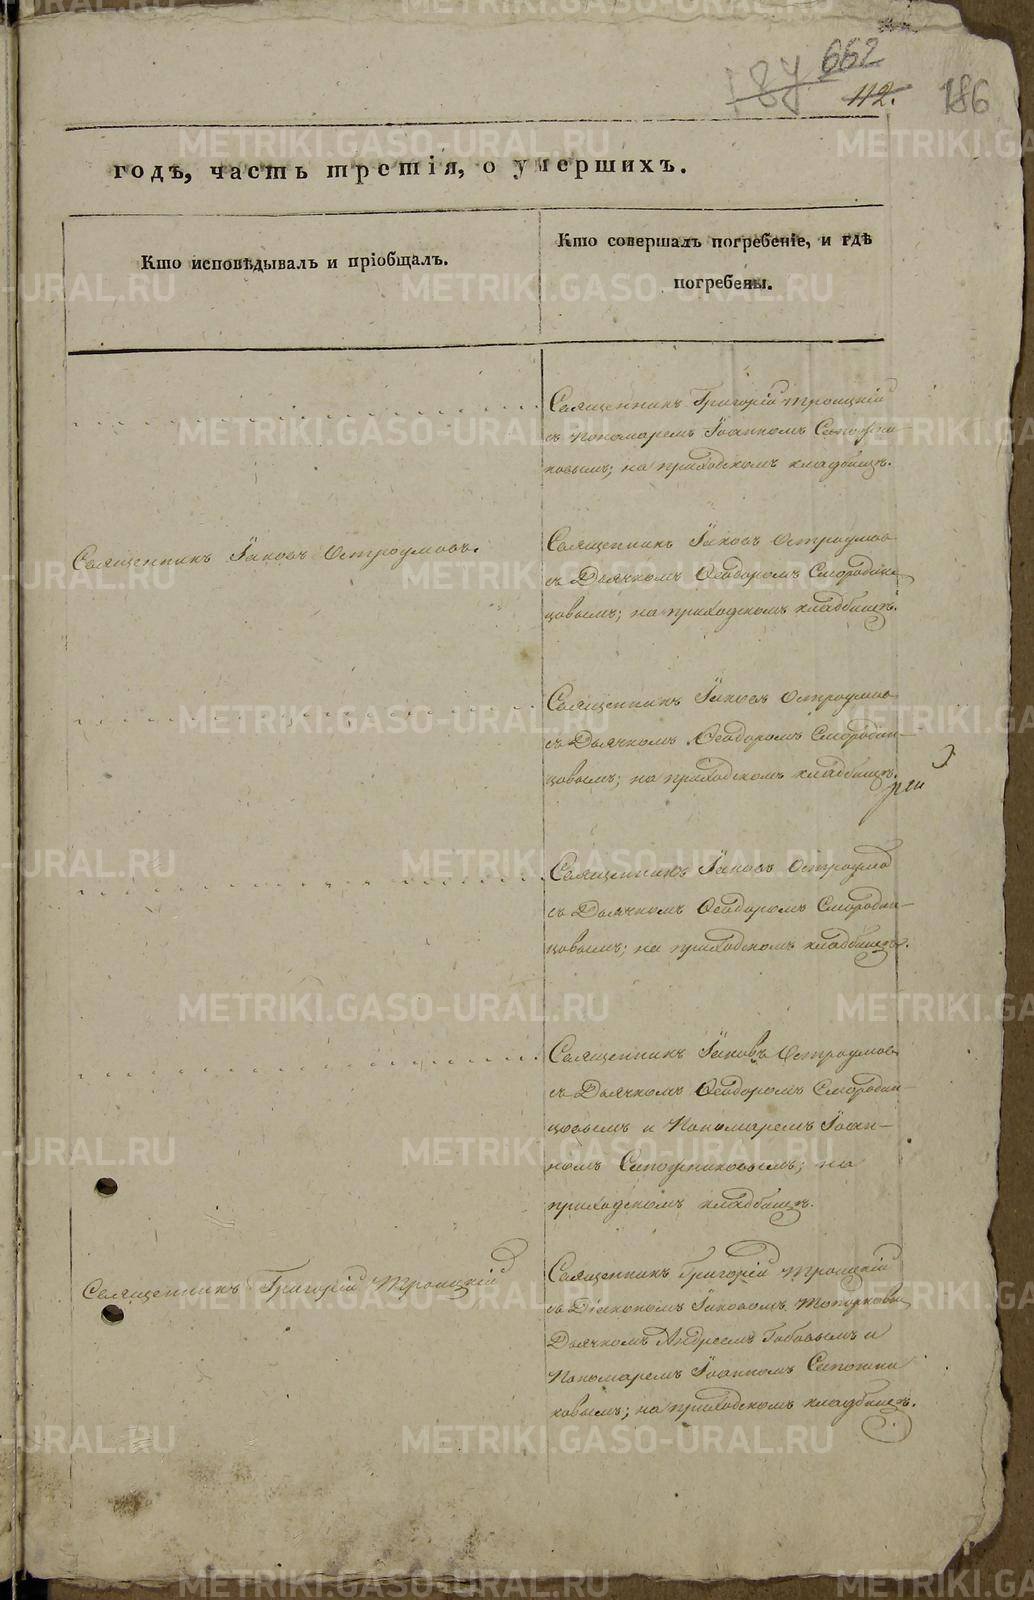 662
187
112.
186
годѣ, часть третія, о умершихъ.
Кто исповѣдывалъ и пріобщалъ.
Кто совершалъ погребеніе, и гдѣ
погребены.
Священникъ Григорій Троицкій
съ Пономаремъ Іоанномъ Сапожни-
ковымъ; на приходскомъ кладбищѣ.
Священникъ Іаковъ Остроумовъ.
Священникъ Іаковъ Остроумов
съ Дьячкомъ Ѳеодоромъ Смородин
цовымъ; на приходскомъ кладбищѣ.
Священникъ Іаковъ Остроумов
съ Дьячкомъ Ѳеодоромъ Смородин-
цовымъ; на приходскомъ кладбищѣ.
Священникъ Іаковъ Остроумов
съ Дьячкомъ Ѳеодоромъ Смородин-
цовымъ; на приходскомъ кладбищѣ.
Священникъ Іаковъ Остроумов
съ Дьячкомъ Ѳеодоромъ Смородин-
цовымъ и Пономаремъ Іоан-
номъ Сапожниковымъ; на
приходскомъ кладбищѣ.
Священникъ Григорій Троицкій
Священникъ Григорій Троицкій
съ Діакономъ Іаковомъ Топорковы
Дьячкомъ Андреемъ Бабовымъ и
Пономаремъ Іоанномъ Сапожни
ковымъ; на приходскомъ кладбищѣ.
METRIKI.GASO-URAL.RU